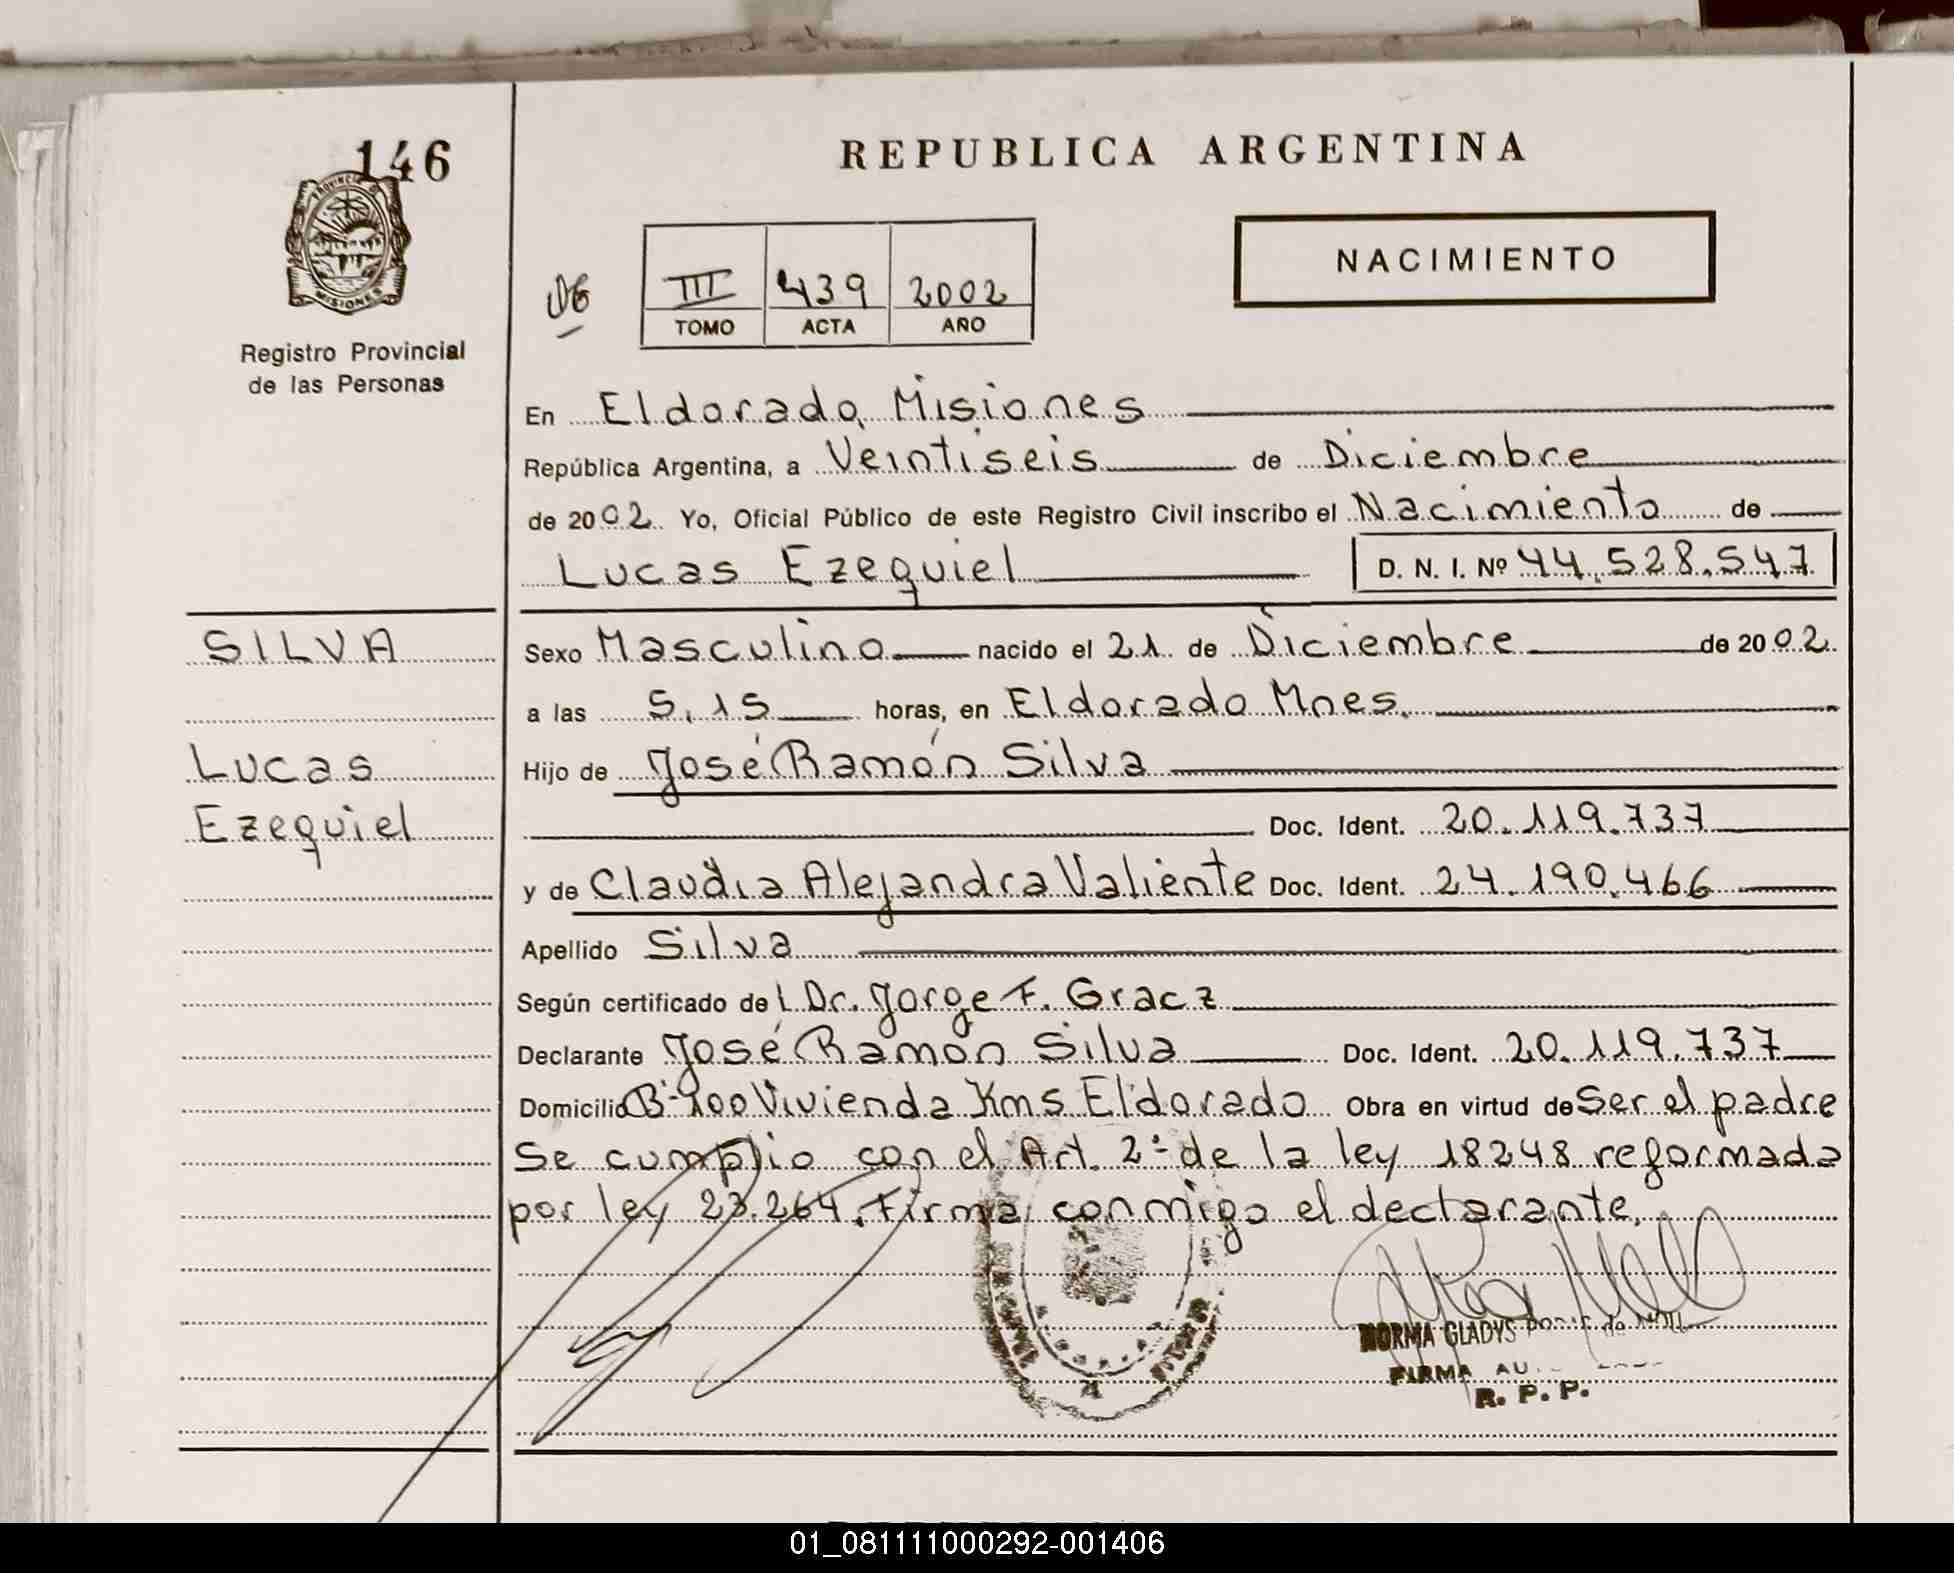 146
REPUBLICA ARGENTINA
PROVINCIA DE
MISIONES
NACIMIENTO
III 439 2002
TOMO ACTA AÑO
Registro Provincial
de las Personas
En Eldorado, Misiones
República Argentina, a Veintiseis de Diciembre
de 2002 Yo, Oficial Público de este Registro Civil inscribo el Nacimiento de
Lucas Ezequiel D. N. I. Nº 44.528.547
SILVA
Lucas
Ezequiel
Sexo Masculino nacido el 21 de Diciembre de 2002.
a las 5,15 horas, en Eldorado Mnes.
Hijo de José Ramón Silva
Doc. Ident. 20.119.737
y de Claudia Alejandra Valiente Doc. Ident. 24.190.466
Apellido Silva
Según certificado de l Dr. Jorge F. Gracz
Declarante José Ramón Silva Doc. Ident. 20.119.737
Domicilio Bº 100 Vivienda Km5 Eldorado Obra en virtud de Ser el padre
Se cumplio con el Art. 2º de la ley 18248 reformada
por ley 23.264. Firma conmigo el declarante.
NORMA GLADYS
FIRMA
R. P. P.
01_081111000292-001406